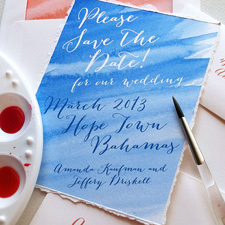 Please
Save The
Date!
for our wedding
March 2013
Hope Town
Bahamas
Amanda Kaufman and
Jeffery Driskell